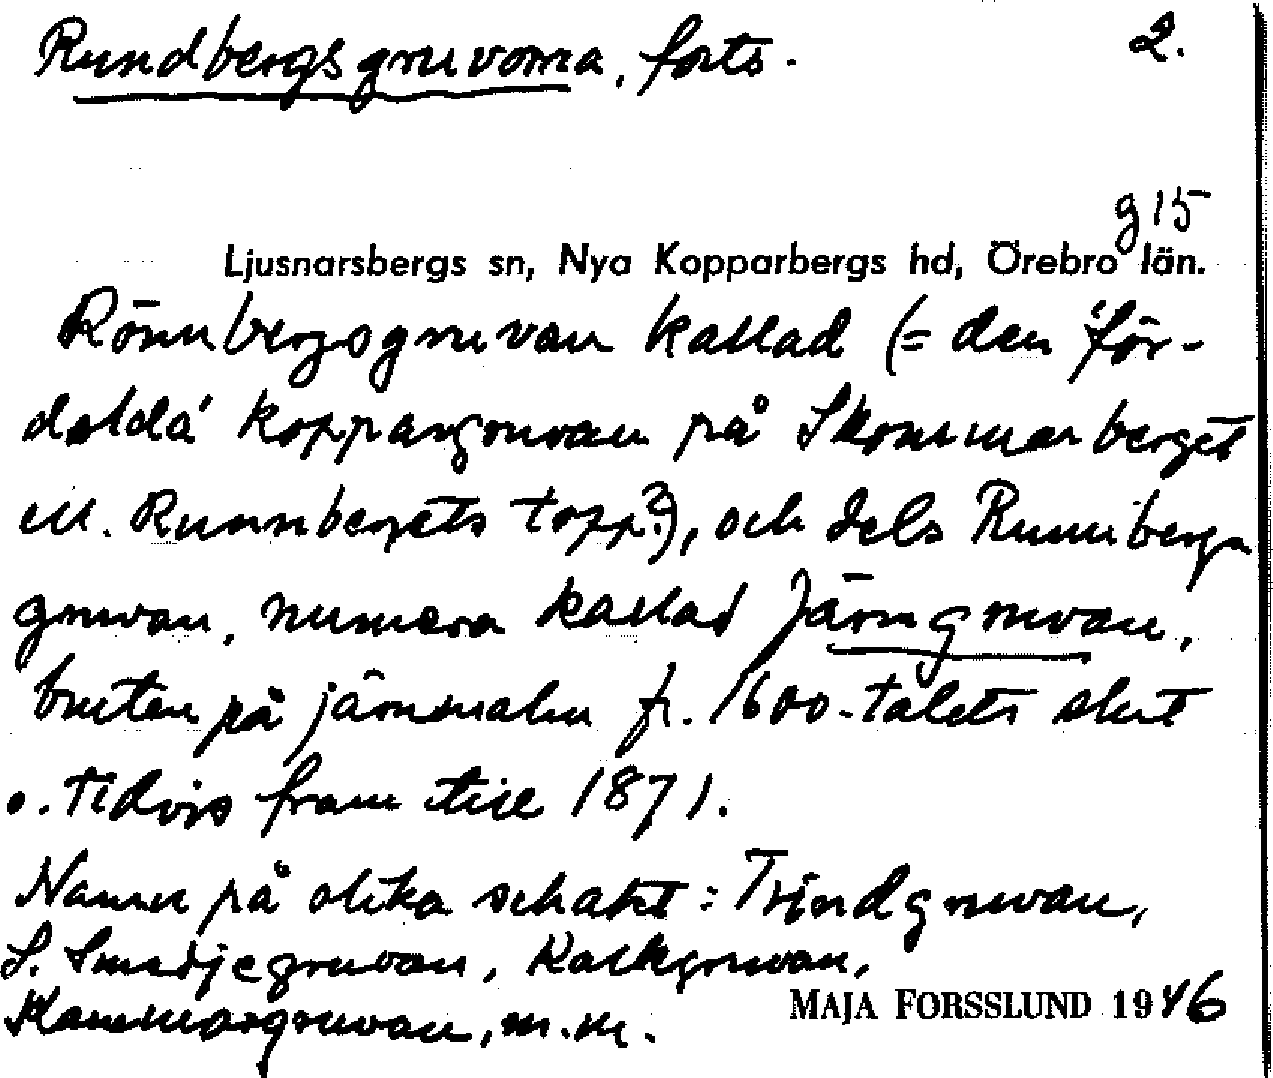 Rundbergsgruvorna, forts.
2.
g 15
Ljusnarsbergs sn, Nya Kopparbergs hd, Örebro län.
Rönnbergsgruvan kallad (= den 'för-
dolda' koppargruvan på Skommarberget
ell. Runnbergets topp?), och dels Runnbergs
gruvan, numera kallad Järngruvan,
bruten på järnmalm fr. 1600-talets slut
o. tidvis fram till 1871.
Namn på olika schakt: Trindgruvan,
S. Smedjegruvan, Kalkgruvan,
Kammargruvan, m.m.
MAJA FORSSLUND 1946